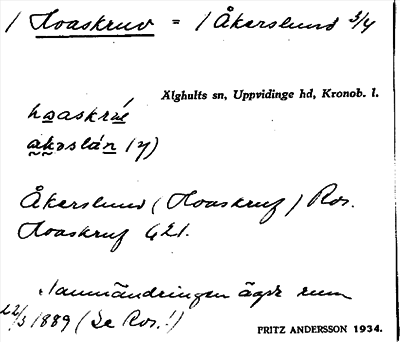 / Hoaskruv = / Åkerslund 3/4
Älghults sn, Uppvidinge hd, Kronob. l.
åkerslån (y)
Åkerslund (Hoaskruf) Ros.
Hoaskruf G21.
Namnändringen ägde rum
22/3 1889 (Se Ros.!)
FRITZ ANDERSSON 1934.